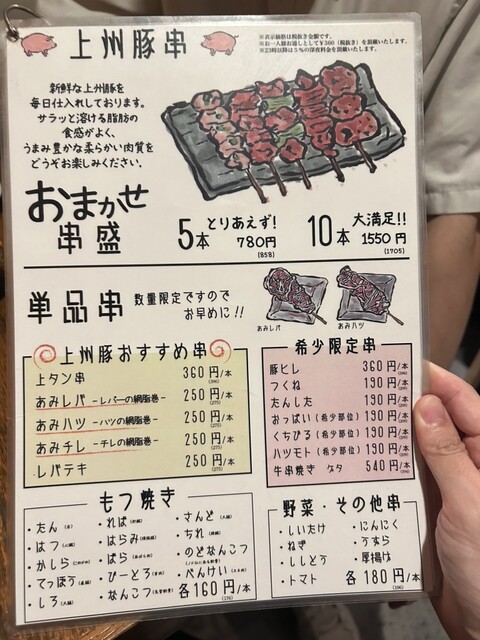 上州豚串
※表示価格は税抜き金額です。
※お一人様お通しとして¥300（税抜き）を頂戴いたします。
※23時以降は5％の深夜料金を頂戴いたします。
新鮮な上州豚を
毎日仕入れしております。
サラッと溶ける脂肪の
食感がよく、
うまみ豊かな柔らかい肉質を
どうぞお楽しみください。
おまかせ
串盛
5本 とりあえず! 780円
(858)
10本 大満足!! 1550円
(1705)
単品串
数量限定ですので
お早めに!!
あみレバ
あみハツ
上州豚おすすめ串
上タン串 360円/本
(396)
あみレバ -レバーの網脂巻- 250円/本
(275)
あみハツ -ハツの網脂巻- 250円/本
(275)
あみチレ -チレの網脂巻- 250円/本
(275)
レバテキ 250円/本
(275)
希少限定串
豚ヒレ 360円/本
つくね 190円/本
たんした 190円/本
おっぱい（希少部位）190円/本
くちびる（希少部位）190円/本
ハツモト（希少部位）190円/本
牛串焼き ゲタ 540円/本
もつ焼き
・たん
・はつ
・かしら
・てっぽう
・しろ
・れば
・はらみ
・ばら
・ひーとろ
・なんこつ
・さんど
・ちれ
・のどなんこつ
・べんけい
各160円/本
(176)
野菜・その他串
・しいたけ
・ねぎ
・ししとう
・トマト
・にんにく
・うずら
・厚揚げ
各180円/本
(198)